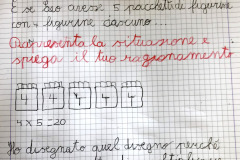 E se Leo avesse 5 pacchetti di figurine
con 4 figurine ciascuno...
Rappresenta la situazione e
spiega il tuo ragionamento
4 4 4 4 4
4 X 5 = 20
Ho disegnato quel disegno perché